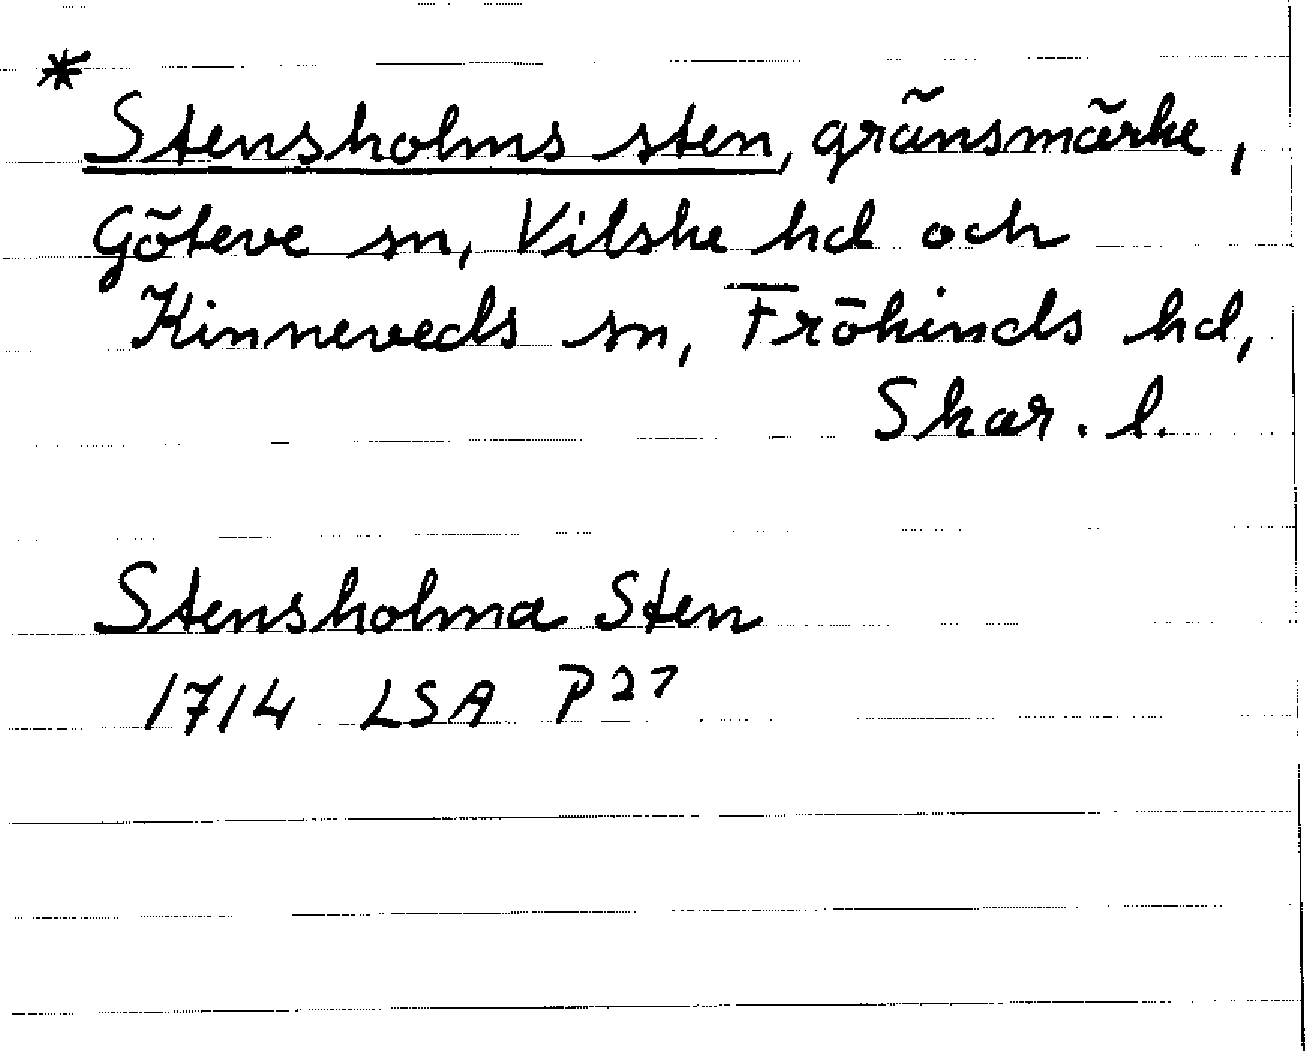 *
Stensholms sten, gränsmärke,
Göteve sn, Vilske hd och
Kinneveds sn, Frökinds hd,
Skar. l.
Stensholma Sten
1714 LSA P27